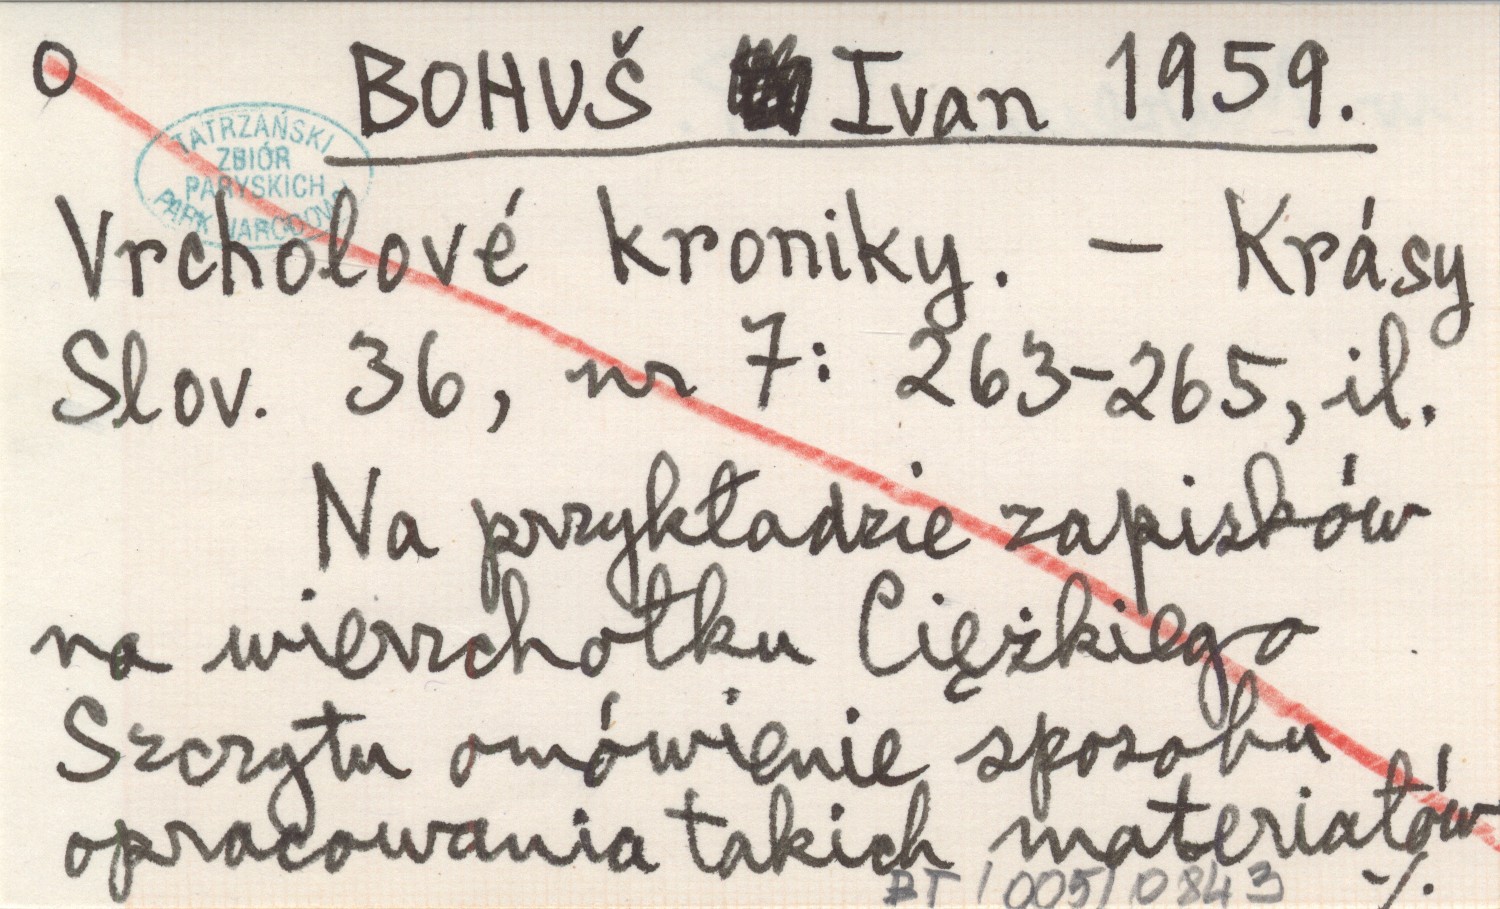 O BOHUŠ Ivan 1959.
TATRZAŃSKI
ZBIÓR
PARYSKICH
PARK NARODOWY
Vrcholové kroniky. – Krásy
Slov. 36, nr 7: 263-265, il.
Na przykładzie zapisków
na wierzchołku Ciężkiego
Szczytu omówienie sposobu
opracowania takich materiałów
-/.
PT/005/0843